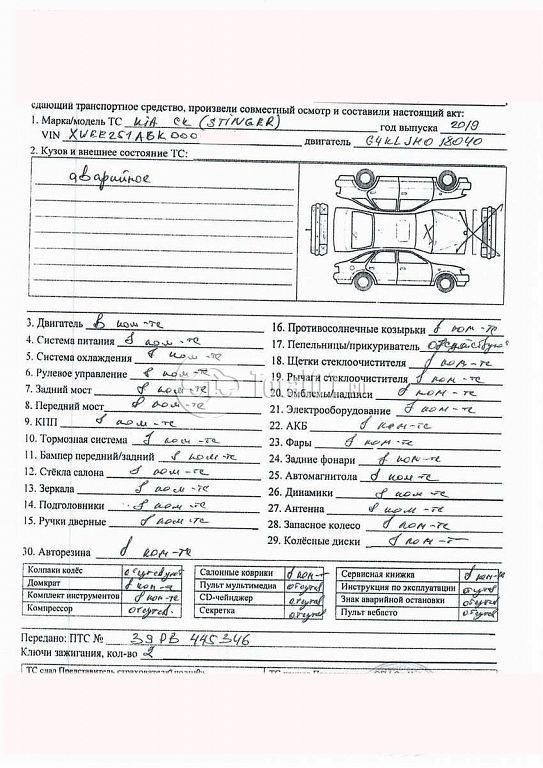 сдающий транспортное средство, произвели совместный осмотр и составили настоящий акт:
1. Марка/модель ТС KIA CK (STINGER) год выпуска 2019
VIN XWEE251ABK000 двигатель G4KLJH018040
2. Кузов и внешнее состояние ТС:
аварийное
3. Двигатель в ком-те
4. Система питания в ком-те
5. Система охлаждения в ком-те
6. Рулевое управление в ком-те
7. Задний мост в ком-те
8. Передний мост в ком-те
9. КПП в ком-те
10. Тормозная система в ком-те
11. Бампер передний/задний в ком-те
12. Стёкла салона в ком-те
13. Зеркала в ком-те
14. Подголовники в ком-те
15. Ручки дверные в ком-те
16. Противосолнечные козырьки в ком-те
17. Пепельницы/прикуриватель
18. Щетки стеклоочистителя в ком-те
19. Рычаги стеклоочистителя в ком-те
20. Эмблемы/надписи в ком-те
21. Электрооборудование в ком-те
22. АКБ в ком-те
23. Фары в ком-те
24. Задние фонари в ком-те
25. Автомагнитола в ком-те
26. Динамики в ком-те
27. Антенна в ком-те
28. Запасное колесо в ком-те
29. Колёсные диски в ком-те
30. Авторезина в ком-те
Колпаки колёс отсутствуют
Домкрат в ком-те
Комплект инструментов в ком-те
Компрессор отсутв.
Салонные коврики в ком-т
Пульт мультимедиа отсутв
CD-чейнджер отсутв
Секретка отсутв
Сервисная книжка в ком-те
Инструкция по эксплуатации отсутв
Знак аварийной остановки отсутв
Пульт вебасто отсутв
Передано: ПТС № 39РВ 445346
Ключи зажигания, кол-во 2
ТС сдал Представитель